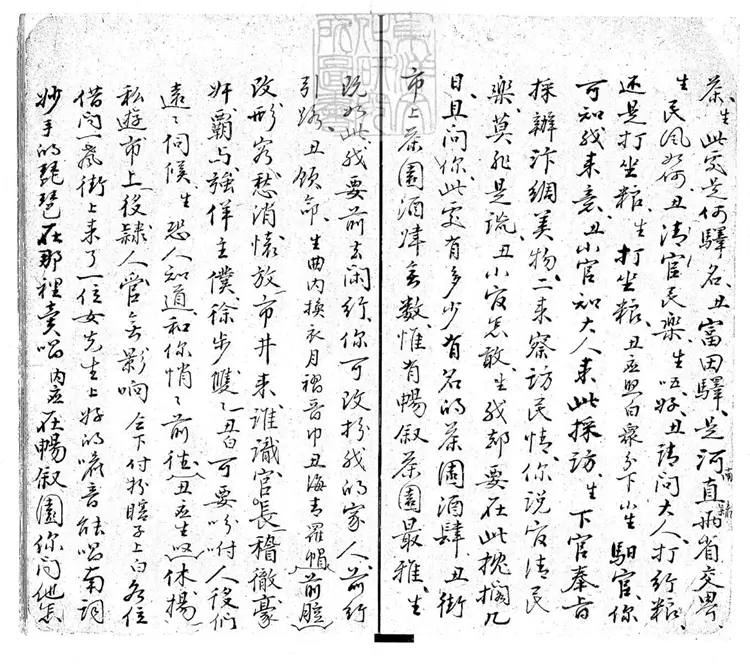 茶、生此处是何驛名、丑富田驛、是河南直隸两省交界、
生民风如何、丑清官民樂、生唔好、丑請问大人打行粮、
还是打坐粮、生打坐粮、丑应照白禀下小生官、你
可知我来意、丑小官知大人来此採訪、生下官奉旨
採辦汴綢美物、二来察訪民情、你説官清民
樂、莫非是謊、丑小官怎敢、生我都要在此耽擱几
日、且问你、此處有多少有名的茶園酒肆、丑街
市上茶園酒無数、惟有暢叙茶園最雅、生
既如此我要前去闲行、你可改扮我的家人、前行
引路、丑領命、生曲内換衣月褶晋巾丑海青羅帽前腔
改形容愁消懷放、市井来谁識官長、稽徹豪
奸霸与强佯主僕徐步雙〻丑白可要吩咐人役们
遠〻伺候、生恐人知道和你悄〻前往、丑应生叹休揚
私遊市上、役隸人管無影响 仝下付扮瞎子上白各位
借问一声、街上来了一位女先生上好的嗓音能唱南詞
妙手的琵琶在那裡賣唱内应在暢叙園你问他怎